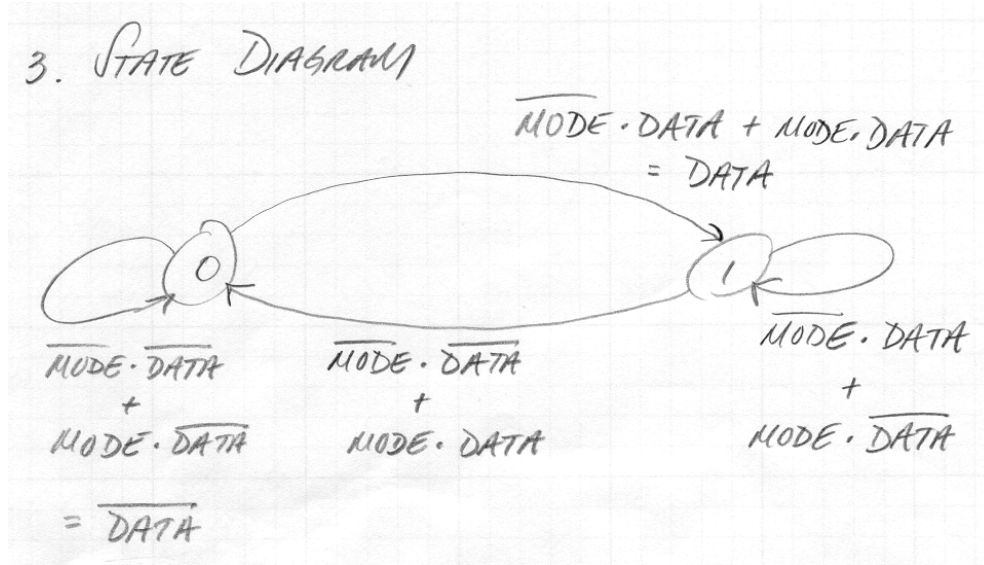 3. STATE DIAGRAM
M̅O̅D̅E̅ · DATA + MODE · DATA
= DATA
0
1
M̅O̅D̅E̅ · D̅A̅T̅A̅
+
MODE · D̅A̅T̅A̅
= D̅A̅T̅A̅
M̅O̅D̅E̅ · D̅A̅T̅A̅
+
MODE · DATA
M̅O̅D̅E̅ · DATA
+
MODE · D̅A̅T̅A̅